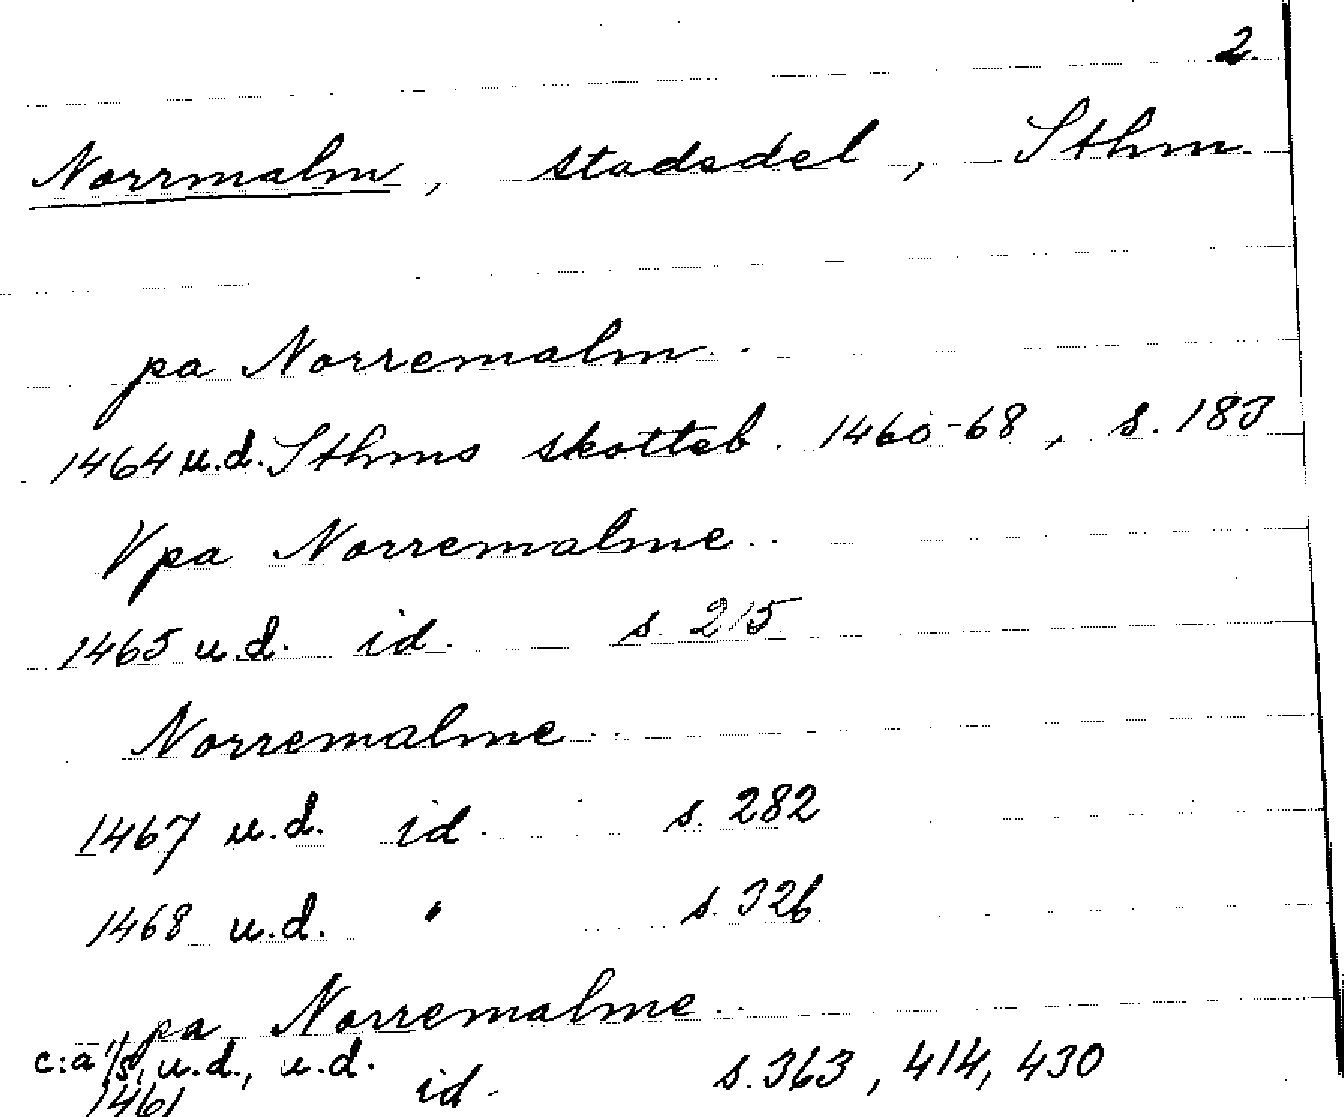 2.
Norrmalm, stadsdel, Sthm
pa Norremalm
1464 u.d. Sthms skotteb. 1460-68, s. 183
Vpa Norremalme
1465 u.d. id. s. 215
Norremalme
1467 u.d. id. s. 282
1468 u.d. " s. 326
pa Norremalme
c:a 1/5, u.d., u.d.
1461 id. s. 363, 414, 430